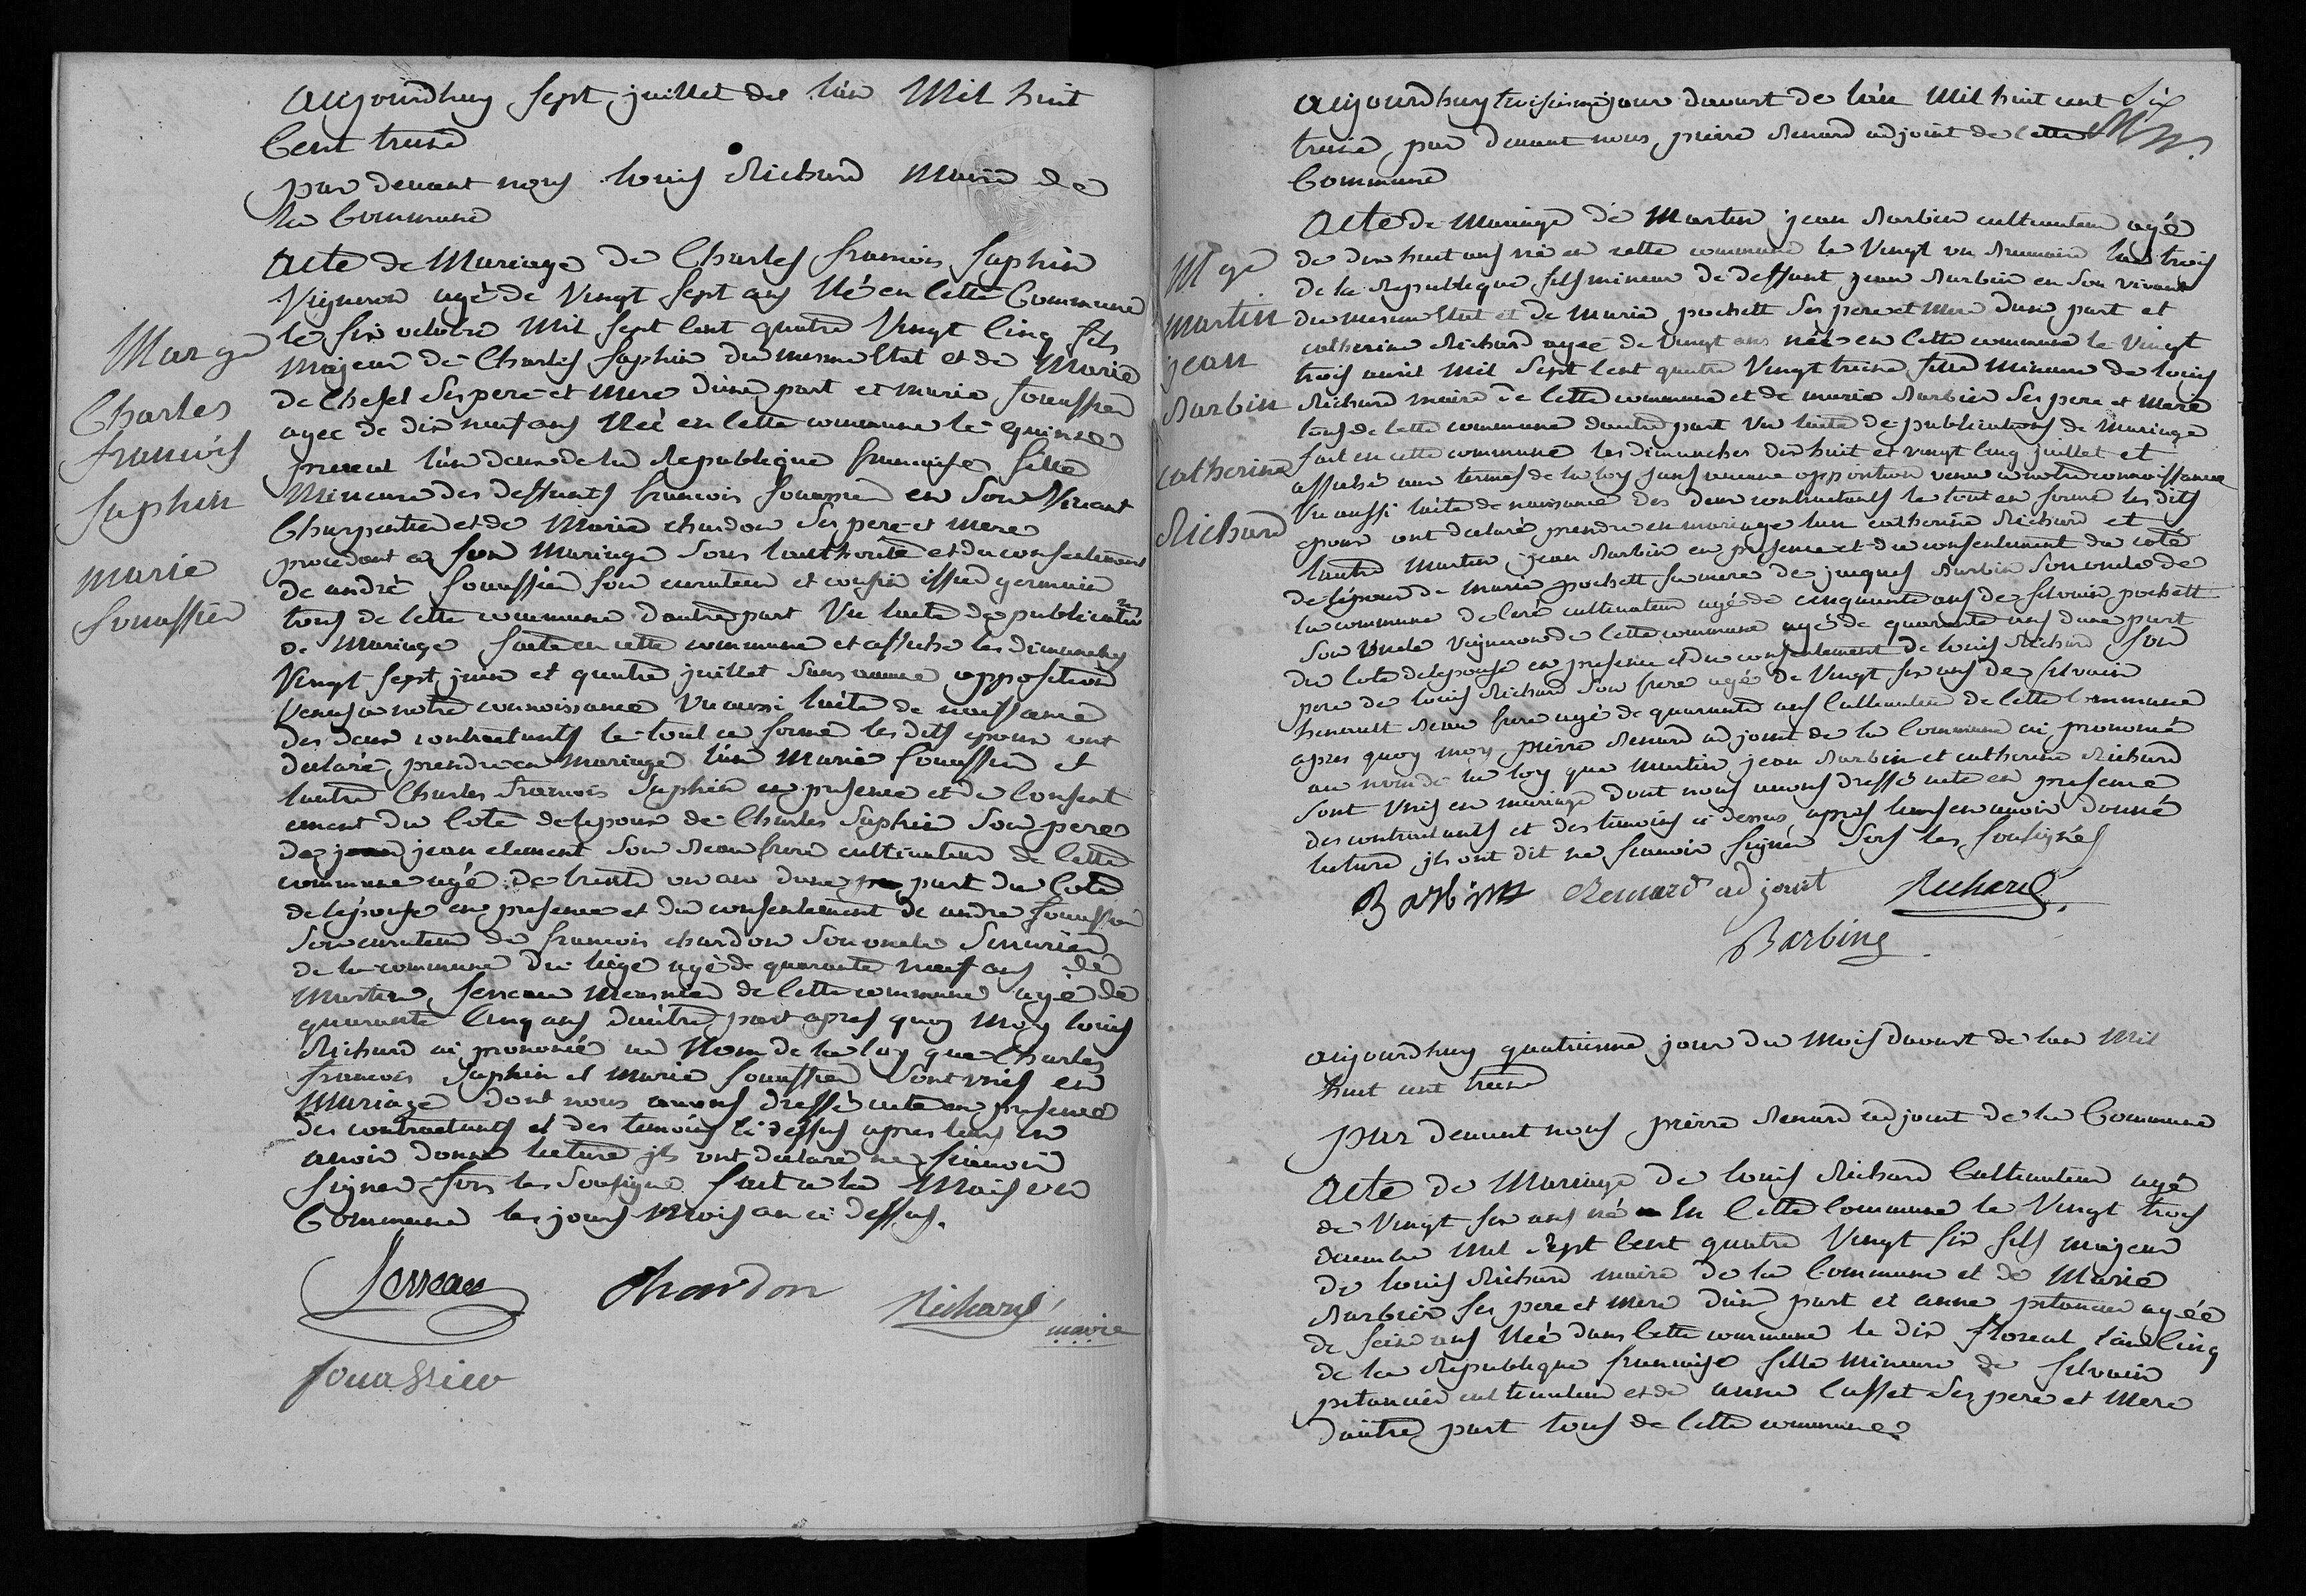 aujourdhuy sept juillet de lan Mil huit
Cent treize
par devant nous louis Richard Maire de
la Commune
Acte de Mariage de Charles francois saphin
Vigneron agé de Vingt sept ans Né en Cette Commune
le six octobre Mil sept Cent quatre Vingt Cinq fils
Majeur de Charles saphin du mesme Etat et de Marie
ses pere et mere dune part et marie fouassier
agee de dix neuf ans Née en Cette commune le quinze
lan deux de la Republique francaise fille
Mineure des deffunts francois fouassier en son Vivant
Charpentier et de Marie chardon ses pere et mere
procedant en son Mariage sous lauthorité et du consentement
de andré fouassier son curateur et cousin issue germain
tous de Cette commune dautre part Vu lacte de publication
de Mariage faite en cette commune et affiche les dimanches
Vingt sept juin et quatre juillet sans aucune opposition
venus a notre connoissance Vu aussi lacte de naissance
des deux contractants le tout en forme les dits epoux ont
declaré prendre en mariage lun Marie fouassier et
lautre Charles francois Saphin en presence et du Consent
ement du Coté de lepoux de Charles Saphin Son pere
de jean clement son beau frere cultivateur de Cette
commune agé de trente un an dune part du Coté
de lepouse en presence et du consentement de andre fouassier
son curateur de francois chardon son oncle Serurier
de la commune du liége agé de quarante neuf ans de
Martin ferreau Meusnier de Cette commune agé de
quarante Cinq ans dautre part apres quoy Moy louis
Richard ai prononcé au Nom de la loy que Charles
francois Saphin et Marie fouassier Sont unis en
Mariage dont nous avons dressé acte en presence
des contractants et des temoins ci dessus apres leurs en
avoir donné lecture ils ont declaré ne scavoir
signer fors les Sousigné fait a la Maison
Commune les jours Mois an ci dessus.
ferreau Chardon Richard
maire
fouassier
Marge
Charles
francois
saphin
marie
fouassier
aujourdhuy troisieme jour daoust de lan Mil huit cent
treize par devant nous pierre Renard adjoint de cette
Commune
Six
Acte de Mariage de Martin jean Barbin cultivateur agé
de dix huit ans né en cette commune le Vingt un Brumaire lan trois
de la Republique fils mineur de deffunt jean Barbin en son vivant
du mesme Etat et de Marie pochett ses pere et mere dune part et
catherine Richard agee de Vingt ans née en Cette commune le Vingt
trois avril Mil Sept Cent quatre Vingt treize fille Mineure de louis
Richard maire de Cette commune et de marie Barbier Ses pere et Mere
tous de Cette commune dautre part Vu lacte de publications de Mariage
fait en cette commune les dimanches dix huit et vingt Cinq juillet et
affiché aux termes de la loy sans aucune opposition venu a notre connoissance
Vu aussi lacte de naissance des deux contractants le tout en forme les dits
epoux ont declaré prendre en mariage lun catherine Richard et
lautre Martin jean Barbin en presence et du consentement du coté
de lépoux de Marie pochett sa mere de jacques Barbin Son oncle de
la commune de ceré cultivateur agé de cinquante ans de silvain pochett
son oncle Vigneron de Cette commune agé de quarante ans dune part
du Coté de lepouse en presence et du consentement de louis Richard Son
pere de louis Richard Son frere agé de Vingt six ans de silvain
henault beau frere agé de quarante ans Cultivateur de Cette Commune
apres quoy moy pierre Renard adjoint de la Commune ai prononcé
au nom de la loy que Martin jean Barbin et catherine Richard
Sont Unis en mariage dont nous avons dressé acte en presence
des contractants et des temoins ci dessus apres leurs en avoir donné
lecture ils ont dit ne scavoir signer fors les sousignés
Barbin Renard adjoint Richard
Barbin
Mge
martin
jean
Barbin
catherine
Richard
aujourdhuy quatrieme jour du Mois daoust de lan Mil
huit cent treize
par devant nous pierre Renard adjoint de la Commune
Acte de Mariage de louis Richard Cultivateur agé
de Vingt six ans né En Cette Commune le Vingt trois
decembre Mil Sept Cent quatre Vingt six fils majeur
de louis Richard maire de la Commune et de Marie
Barbier ses pere et mere dune part et anne pitancier agée
de seize ans Née dans Cette commune le dix floreal lan Cinq
de la Republique francaise fille Mineure de Silvain
pitancier cultivateur et de anne Casset Ses pere et Mere
dautre part tous de Cette commune